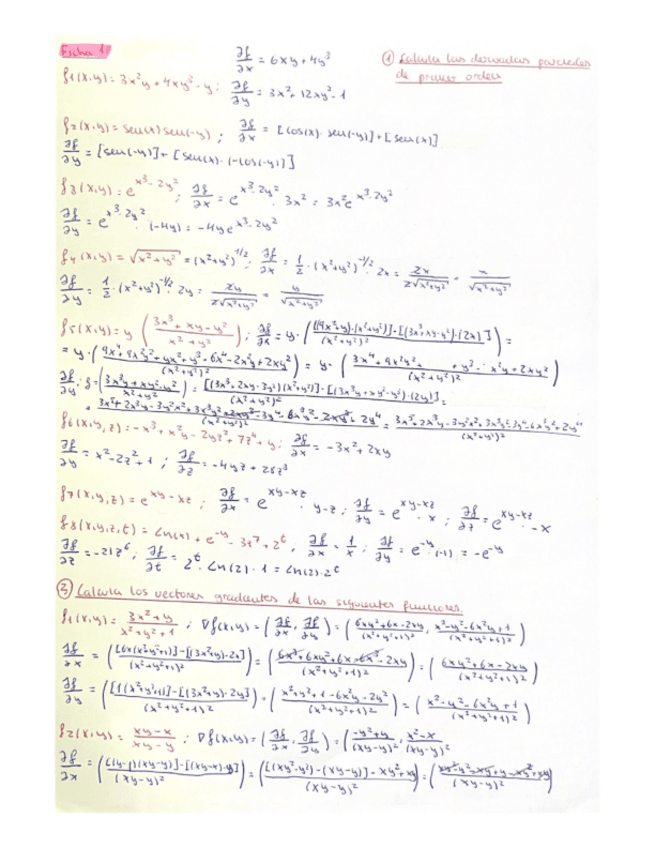 Ficha 1
① Calcula las derivadas parciales de primer orden
f1(x,y) = 3x²y + 4xy³ - y : ∂f/∂x = 6xy + 4y³
∂f/∂y = 3x² + 12xy² - 1
f2(x,y) = sen(x) sen(-y) ; ∂f/∂x = [cos(x) · sen(-y)] + [sen(x)]
∂f/∂y = [sen(-y)] + [sen(x) · (-cos(-y))]
f3(x,y) = e^(x³-2y²) ; ∂f/∂x = e^(x³-2y²) · 3x² = 3x²e^(x³-2y²)
∂f/∂y = e^(x³-2y²) · (-4y) = -4ye^(x³-2y²)
f4(x,y) = √(x²+y²) = (x²+y²)^(1/2) ; ∂f/∂x = 1/2 · (x²+y²)^(-1/2) · 2x = 2x/(2√(x²+y²)) = x/√(x²+y²)
∂f/∂y = 1/2 · (x²+y²)^(-1/2) · 2y = 2y/(2√(x²+y²)) = y/√(x²+y²)
f5(x,y) = y ((3x³ + xy - y²)/(x² + y²)) ; ∂f/∂x = y · ([(9x²+y)·(x²+y²)] - [(3x³+xy-y²)·(2x)])/(x²+y²)² =
= y · (9x⁴ + 9x²y² + yx² + y³ - 6x⁴ - 2x²y + 2xy²)/(x²+y²)² = y · (3x⁴ + 9x²y² + y³ - x²y + 2xy²)/(x²+y²)²
f6(x,y,z) = -x³ + x²y - 2yz² + 7z⁴ + y ; ∂f/∂x = -3x² + 2xy
∂f/∂y = x² - 2z² + 1 ; ∂f/∂z = -4yz + 28z³
f7(x,y,z) = e^(xy-xz) ; ∂f/∂x = e^(xy-xz) · y-z ; ∂f/∂y = e^(xy-xz) · x ; ∂f/∂z = e^(xy-xz) · -x
f8(x,y,z,t) = Ln(x) + e^(-y) - 3z⁷ + 2^t ; ∂f/∂x = 1/x ; ∂f/∂y = e^(-y) · (-1) = -e^(-y)
∂f/∂z = -21z⁶ ; ∂f/∂t = 2^t · Ln(2) · 1 = Ln(2) · 2^t
② Calcula los vectores gradientes de las siguientes funciones.
f1(x,y) = (3x² + y)/(x² + y² + 1) ; ∇f(x,y) = (∂f/∂x, ∂f/∂y) = ((6xy² + 6x - 2xy)/(x²+y²+1)², (x² - y² - 6x²y + 1)/(x²+y²+1)²)
∂f/∂x = ([6x(x²+y²+1)] - [(3x²+y)·2x])/(x²+y²+1)² = (6x³ + 6xy² + 6x - 6x³ - 2xy)/(x²+y²+1)² = (6xy² + 6x - 2xy)/(x²+y²+1)²
∂f/∂y = ([1(x²+y²+1)] - [(3x²+y)·2y])/(x²+y²+1)² = (x² + y² + 1 - 6x²y - 2y²)/(x²+y²+1)² = (x² - y² - 6x²y + 1)/(x²+y²+1)²
f2(x,y) = (xy - x)/(xy - y) ; ∇f(x,y) = (∂f/∂x, ∂f/∂y) = ((-y² + y)/(xy-y)², (x² - x)/(xy-y)²)
∂f/∂x = ([(y-1)(xy-y)] - [(xy-x)·y])/(xy-y)² = ([(xy²-y²) - (xy-y)] - xy² + xy)/(xy-y)² = (xy² - y² - xy + y - xy² + xy)/(xy-y)²